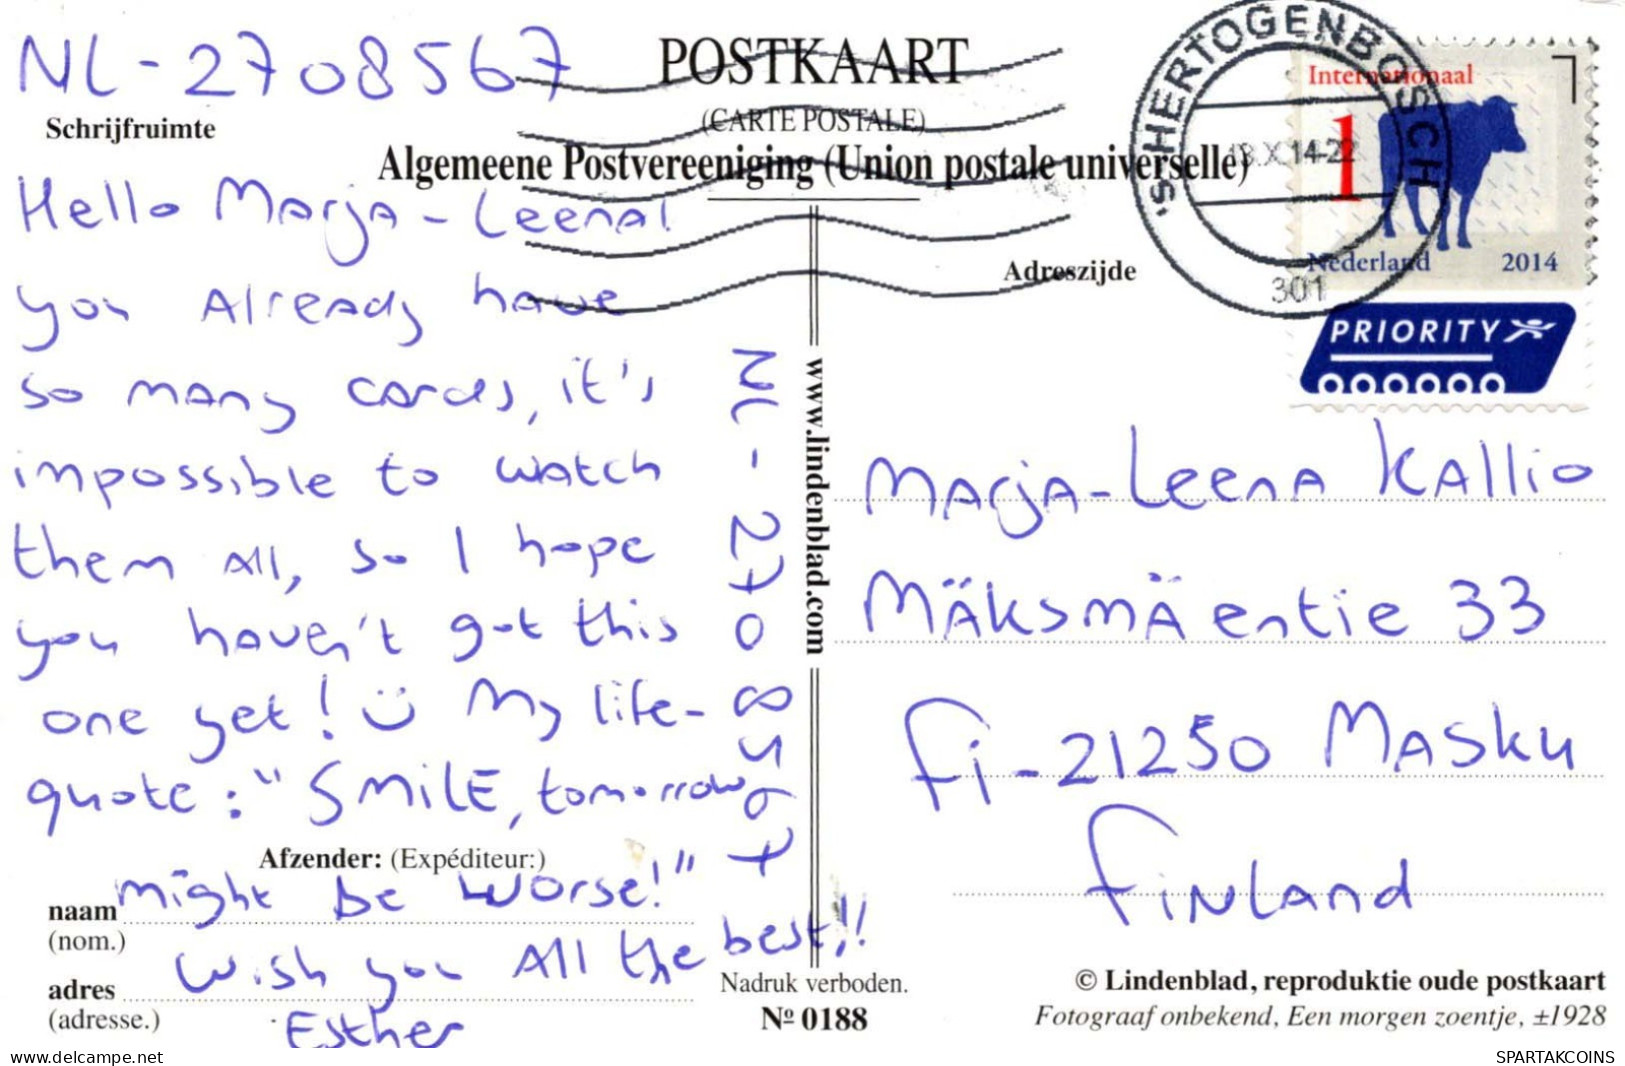 NL-2708567
POSTKAART
(CARTE POSTALE)
Schrijfruimte
Algemeene Postvereeniging (Union postale universelle)
Adreszijde
'S HERTOGENBOSCH
X 14-22
301
Internationaal
1
Nederland 2014
PRIORITY
Hello Marja-Leena!
you Already have
so many cards, it's
impossible to watch
them All, so I hope
you haven't got this
one yet! ü My life-
quote: "SMiLE, tomorrow
might be worse!"
Wish you All the best!!
Esther
NL-2708567
www.lindenblad.com
Afzender: (Expéditeur:)
naam
(nom.)
adres
(adresse.)
Marja-Leena Kallio
Mäksmäentie 33
Fi-21250 Masku
Finland
Nadruk verboden.
Nº 0188
© Lindenblad, reproduktie oude postkaart
Fotograaf onbekend, Een morgen zoentje, ±1928
www.delcampe.net
SPARTAKCOINS